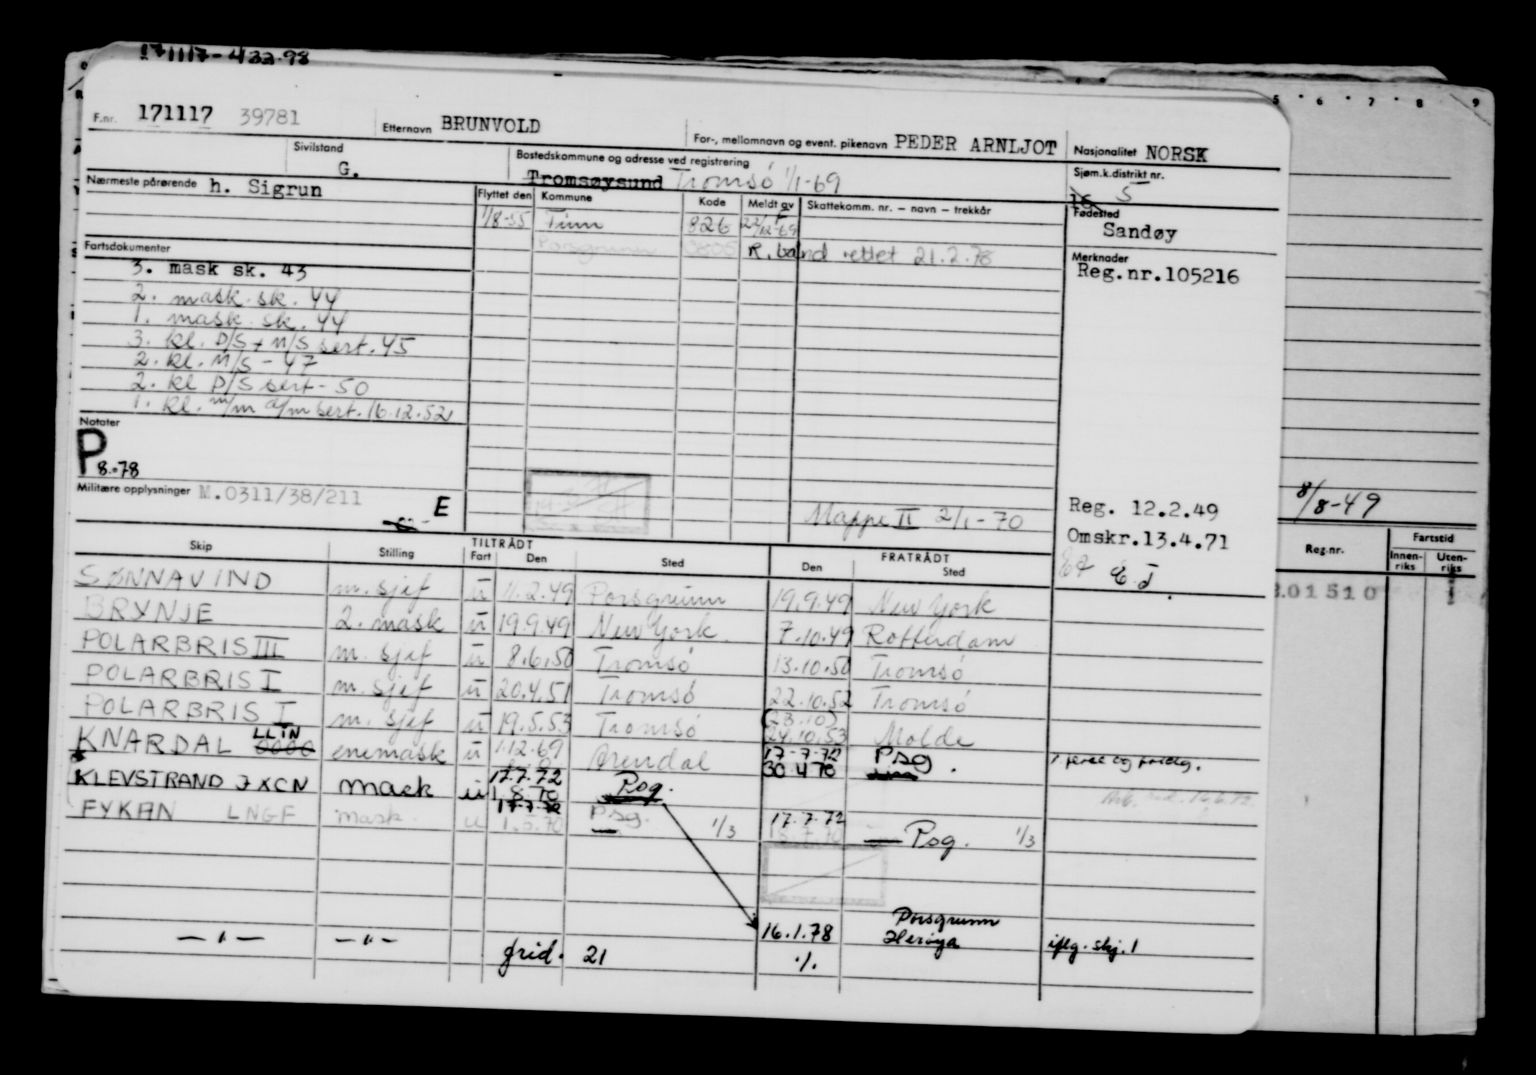 171117-433.98
F.nr. 171117 39781 Etternavn BRUNVOLD For-, mellomnavn og event. pikenavn PEDER ARNLJOT Nasjonalitet NORSK
Sivilstand G. Bostedskommune og adresse ved registrering Tromsøysund Tromsö 1/1-69 Sjøm.k.distrikt nr. 16 5
Nærmeste pårørende h. Sigrun
Flyttet den Kommune Kode Meldt av Skattekomm. nr. – navn – trekkår
1/8-55 Tinn 826 22/12-69
Porsgrunn 0805 R. bånd rettet 21.2.78
Fødested
Sandøy
Merknader
Reg.nr.105216
Fartsdokumenter
3. mask sk. 43
2. mask. sk. 44
1. mask. sk. 44
3. kl. D/S + M/S sert. 45
2. kl. M/S - 47
2. kl D/S sert - 50
1. kl. m/m sert. 16.12.52
Notater
P 8.-78
Militære opplysninger M.0311/38/211
E
Mappe II 2/1-70
Reg. 12.2.49
Omskr.13.4.71
E.J
8/8-49
Skip Stilling TILTRÅDT Fart Den Sted FRATRÅDT Den Sted
Reg.nr. Fartstid Innenriks Utenriks
SØNNAVIND m. sjef u 11.2.49 Porsgrunn 19.9.49 New York
01510 1
BRYNJE 2. mask u 19.9.49 New York 7.10.49 Rotterdam
POLARBRIS III m. sjef u 8.6.50 Tromsö 13.10.50 Tromsö
POLARBRIS I m. sjef u 20.4.51 Tromsö 22.10.52 Tromsö
POLARBRIS I m. sjef u 19.5.53 Tromsö (23.10) 24.10.53 Molde
KNARDAL LLIN enemask u 1.12.69 Arendal 17-7-72 30 4 70 Psg.
KLEVSTRAND JXCN mask u 17.7.72 1.8.70 Psg.
FYKAN LNGF mask u 17.7.72 1.5.70 Psg. 1/3 17.7.72 Psg. 1/3
— " — — " — 16.1.78 Porsgrunn Herøya iflg. skj. 1
frid. 21 ./.